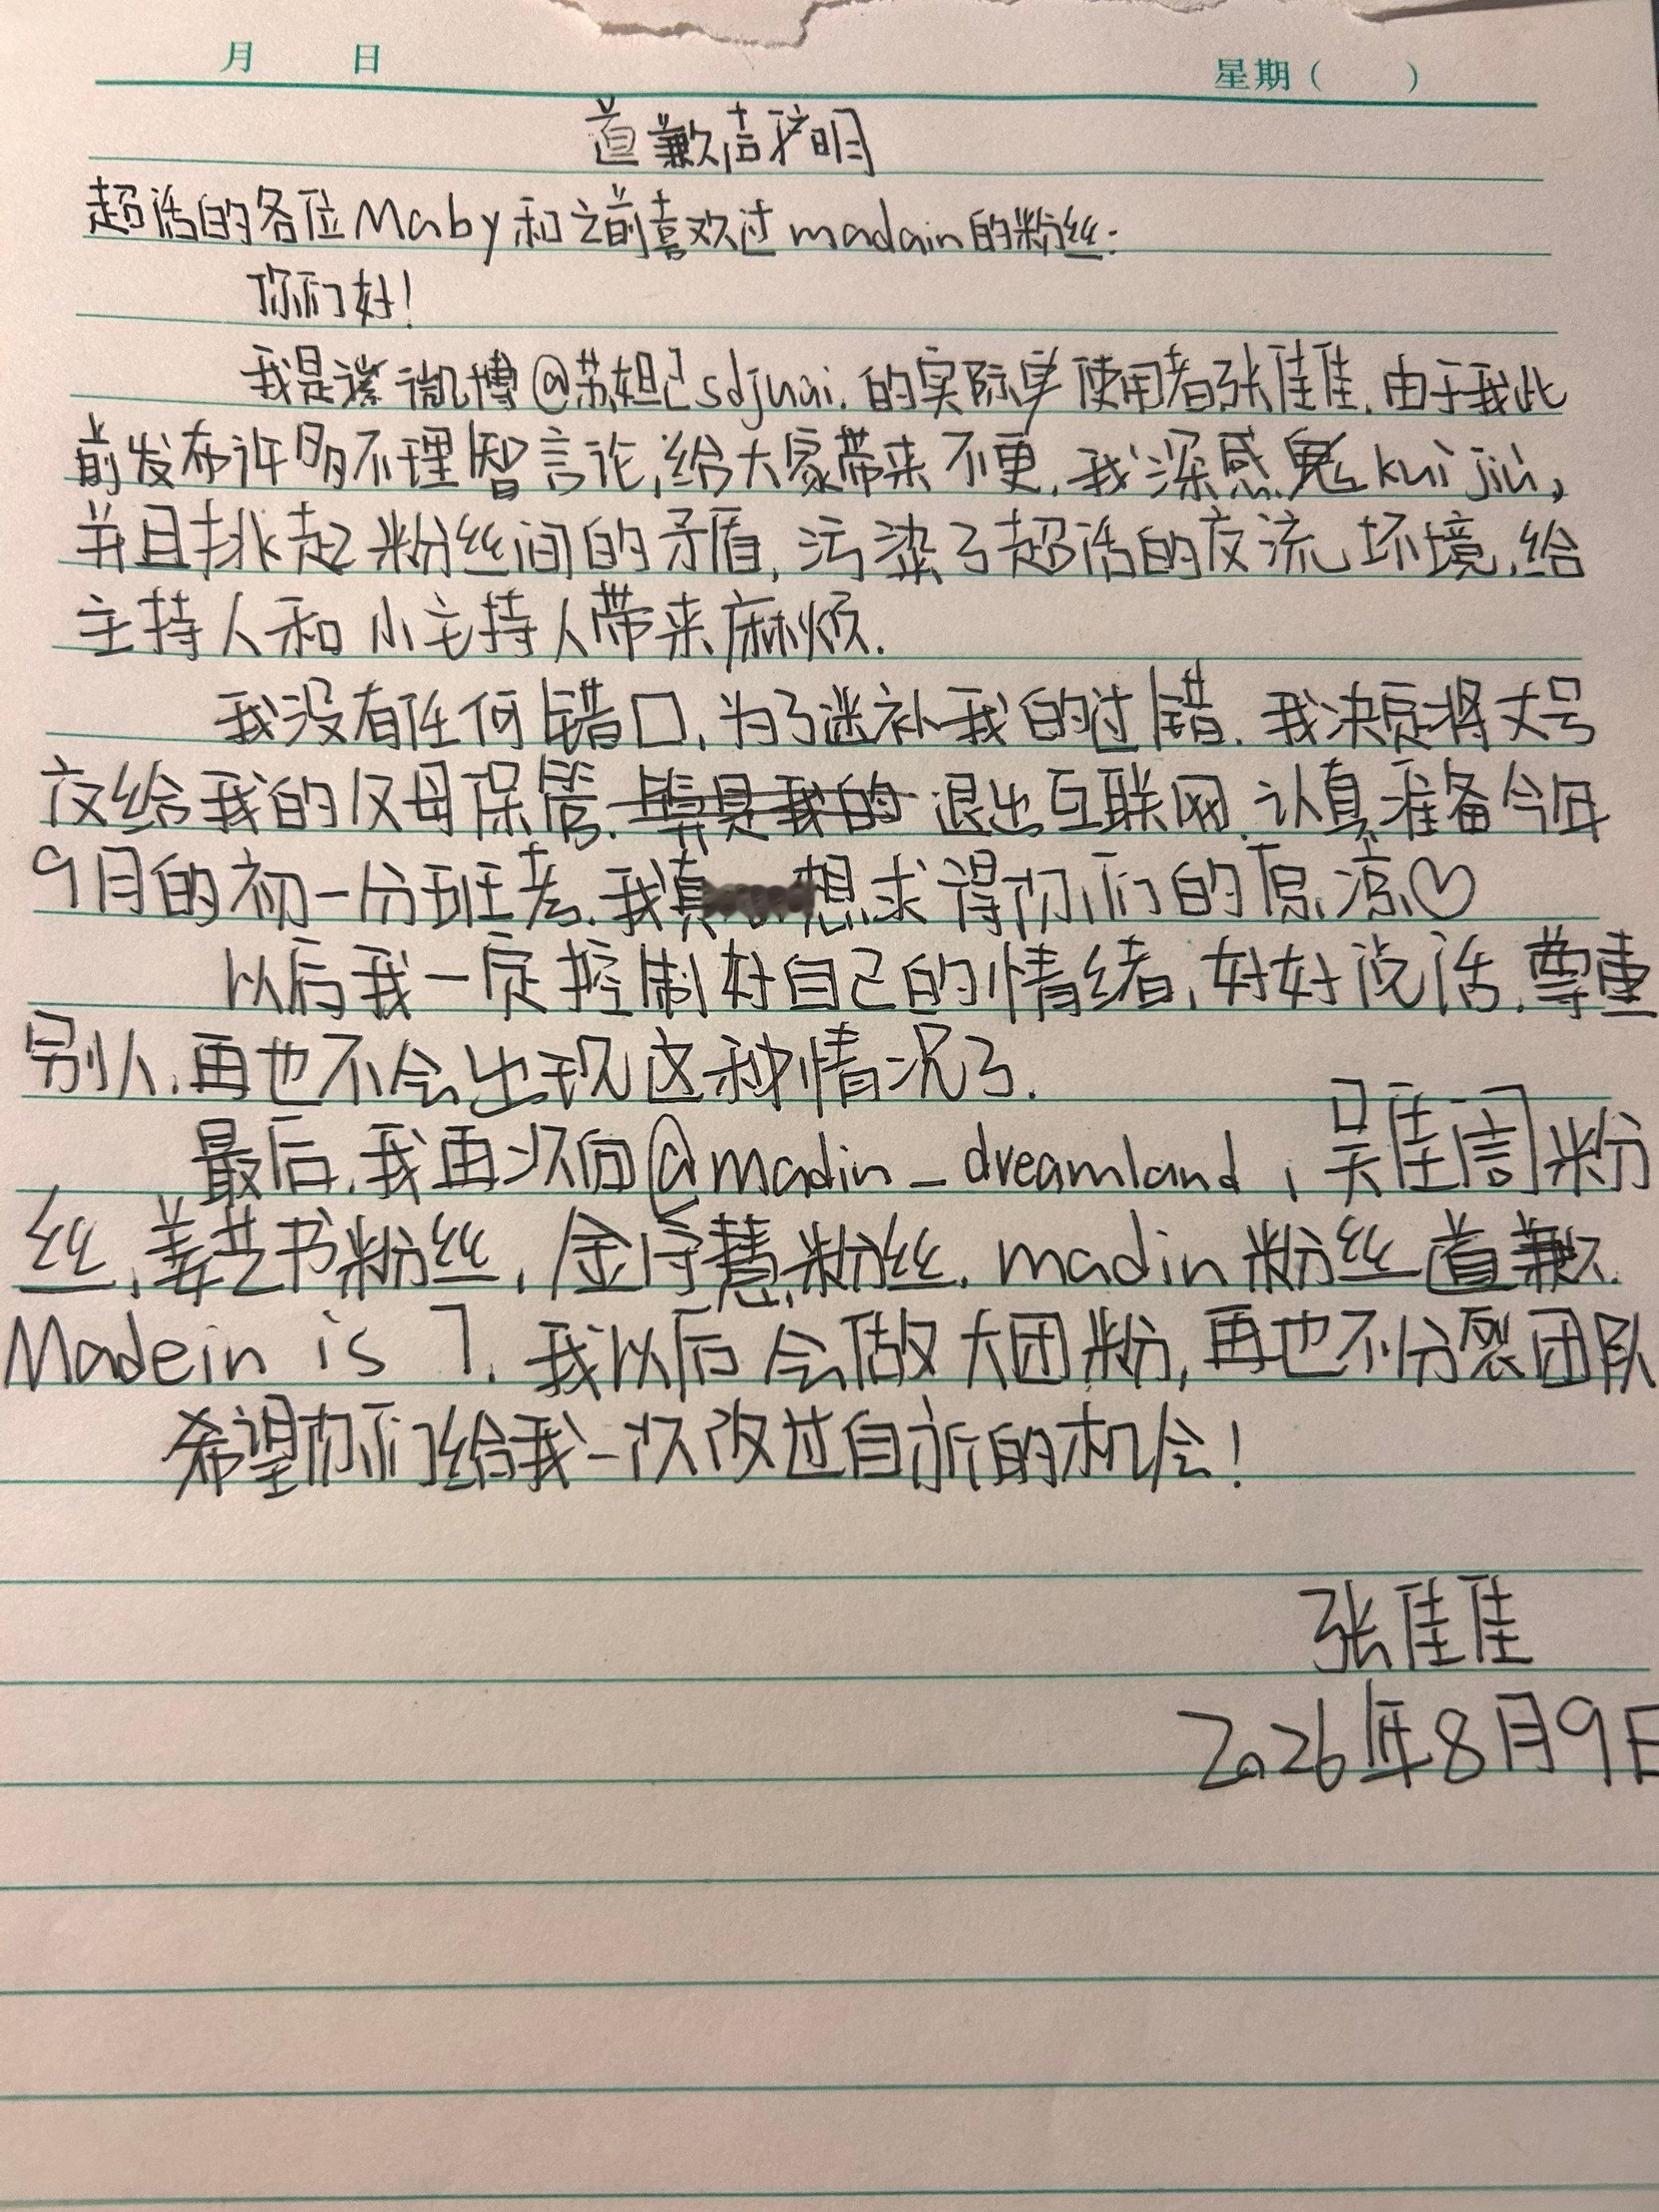 月 日 星期( )
道歉声明
超话的各位Maby和之前喜欢过madain的粉丝:
你们好!
我是微博@苏妲己sdjuai.的实际使用者张佳佳.由于我此
前发布许多不理智言论,给大家带来不更.我深感kui jiu,
并且挑起粉丝间的矛盾,污染了超话的交流坏境,给
主持人和小主持人带来麻烦.
我没有任何错口,为了迷补我的过错.我决定将丈号
交给我的父母保管.退出互联网.认真准备今年
9月的初一分班考.我真想求得你们的原凉♡
以后我一定控制好自己的情绪,好好说话.尊重
别人.再也不会出现这种情况了.
最后.我再次向@madin_dreamland,吴佳周粉
丝,姜艺书粉丝,金守慧粉丝.madin粉丝道歉.
Madein is 7.我以后会做大团粉,再也不分裂团队
希望你们给我一次改过自新的机会!
张佳佳
2026年8月9日